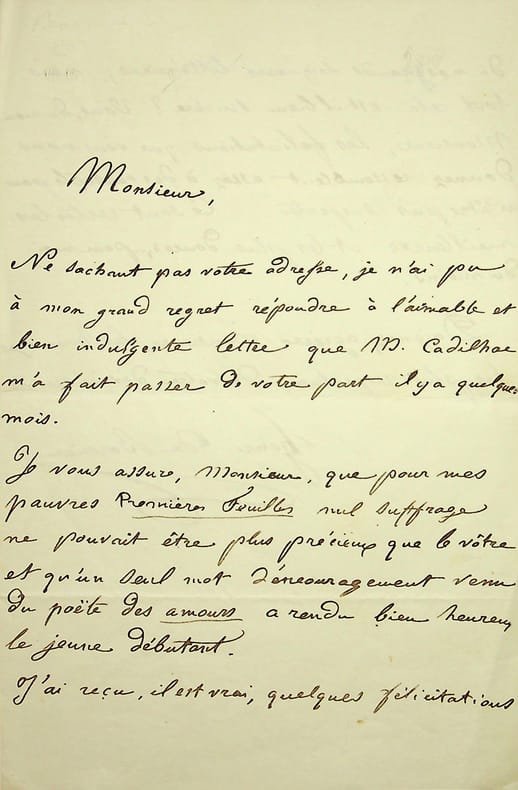 Monsieur,
Ne sachant pas votre adresse, je n'ai pu
à mon grand regret répondre à l'aimable et
bien indulgente lettre que M. Cadilhac
m'a fait passer de votre part il y a quelques
mois.
Je vous assure, Monsieur, que pour mes
pauvres Premières Feuilles nul suffrage
ne pouvait être plus précieux que le vôtre
et qu'un seul mot d'encouragement venu
du poëte des amours a rendu bien heureux
le jeune débutant.
J'ai reçu, il est vrai, quelques félicitations